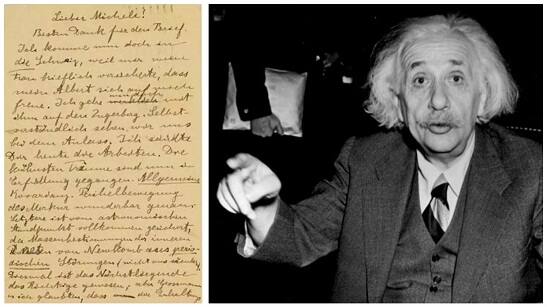 Lieber Michele!
Besten Dank für den Brief.
Ich komme nun doch in
die Schweiz, weil mir meine
Frau brieflich versicherte, dass
mein Albert sich auf mich
freue. Ich gehe mit
ihm auf den Zugerberg. Selbst-
verständlich sehen wir uns
bei dem Anlass. Ich schickte
Dir heute die Arbeiten. Die
kühnsten Träume sind nun in
Erfüllung gegangen. Allgemeine
Kovarianz. Perihelbewegung
des Merkur wunderbar genau.
Letztere ist vom astronomischen
Standpunkt vollkommen gesichert,
die Massenbestimmungen der inneren
Planeten von Newkomb aus perio-
dischen Störungen (nicht aus säkularen)
Diesmal ist das Nächstliegende
das Richtige gewesen,
ich glaubten, dass die Erhaltung